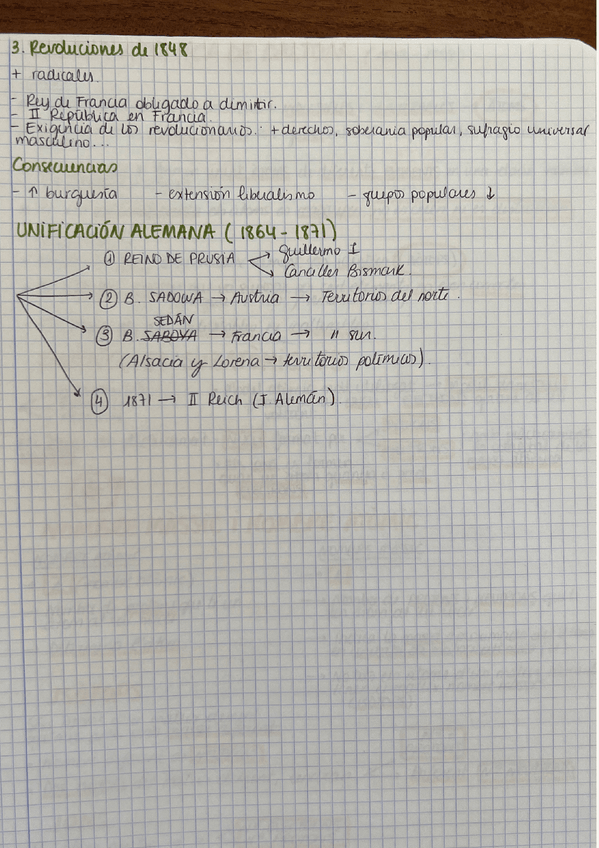 3. Revoluciones de 1848
+ radicales.
- Rey de Francia obligado a dimitir.
- II República en Francia.
- Exigencia de los revolucionarios: + derechos, soberanía popular, sufragio universal
masculino...
Consecuencias
- ↑ burguesía - extensión liberalismo - grupos populares ↓
UNIFICACIÓN ALEMANA (1864-1871)
① REINO DE PRUSIA Guillermo I
Canciller Bismark.
② B. SADOWA → Austria → Territorios del norte.
SEDÁN
③ B. SABOYA → Francia → " sur.
(Alsacia y Lorena → territorios polémicos).
④ 1871 → II Reich (I. Alemán).